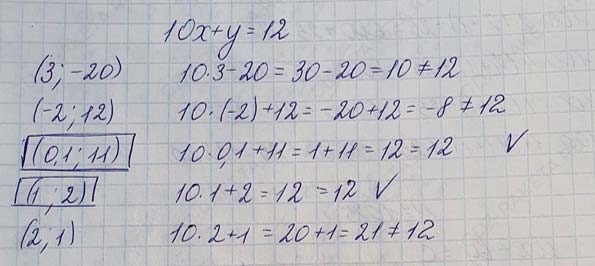 10x+y=12
(3; -20) 10·3-20=30-20=10≠12
(-2; 12) 10·(-2)+12=-20+12=-8≠12
(0,1; 11) 10·0,1+11=1+11=12=12 ✓
(1; 2) 10·1+2=12=12 ✓
(2; 1) 10·2+1=20+1=21≠12